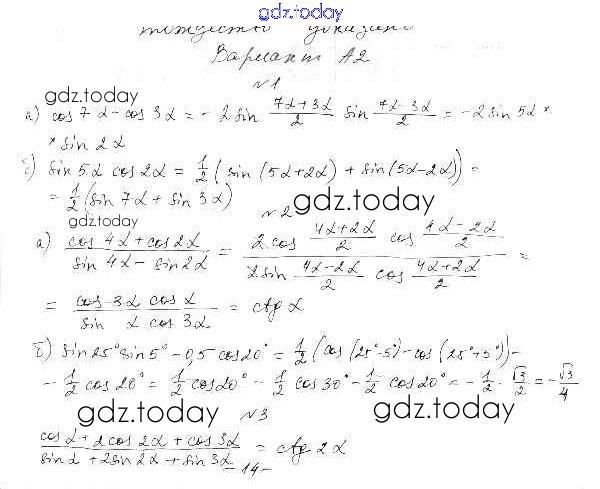 gdz.today
тождество доказано
Вариант А2
№1
gdz.today
а) cos 7α - cos 3α = - 2 sin (7α+3α)/2 sin (7α-3α)/2 = -2 sin 5α *
* sin 2α
б) sin 5α cos 2α = 1/2 (sin (5α+2α) + sin (5α-2α)) =
= 1/2 (sin 7α + sin 3α)
gdz.today
№2
gdz.today
а) (cos 4α + cos 2α)/(sin 4α - sin 2α) = (2 cos (4α+2α)/2 cos (4α-2α)/2)/(2 sin (4α-2α)/2 cos (4α+2α)/2) =
= (cos 3α cos α)/(sin α cos 3α) = ctg α
б) sin 25° sin 5° - 0,5 cos 20° = 1/2 (cos (25°-5°) - cos (25°+5°)) -
- 1/2 cos 20° = 1/2 cos 20° - 1/2 cos 30° - 1/2 cos 20° = - 1/2 · √3/2 = - √3/4
gdz.today
№3
gdz.today
(cos α + 2 cos 2α + cos 3α)/(sin α + 2 sin 2α + sin 3α) = ctg 2α
-14-
gdz.today
gdz.today